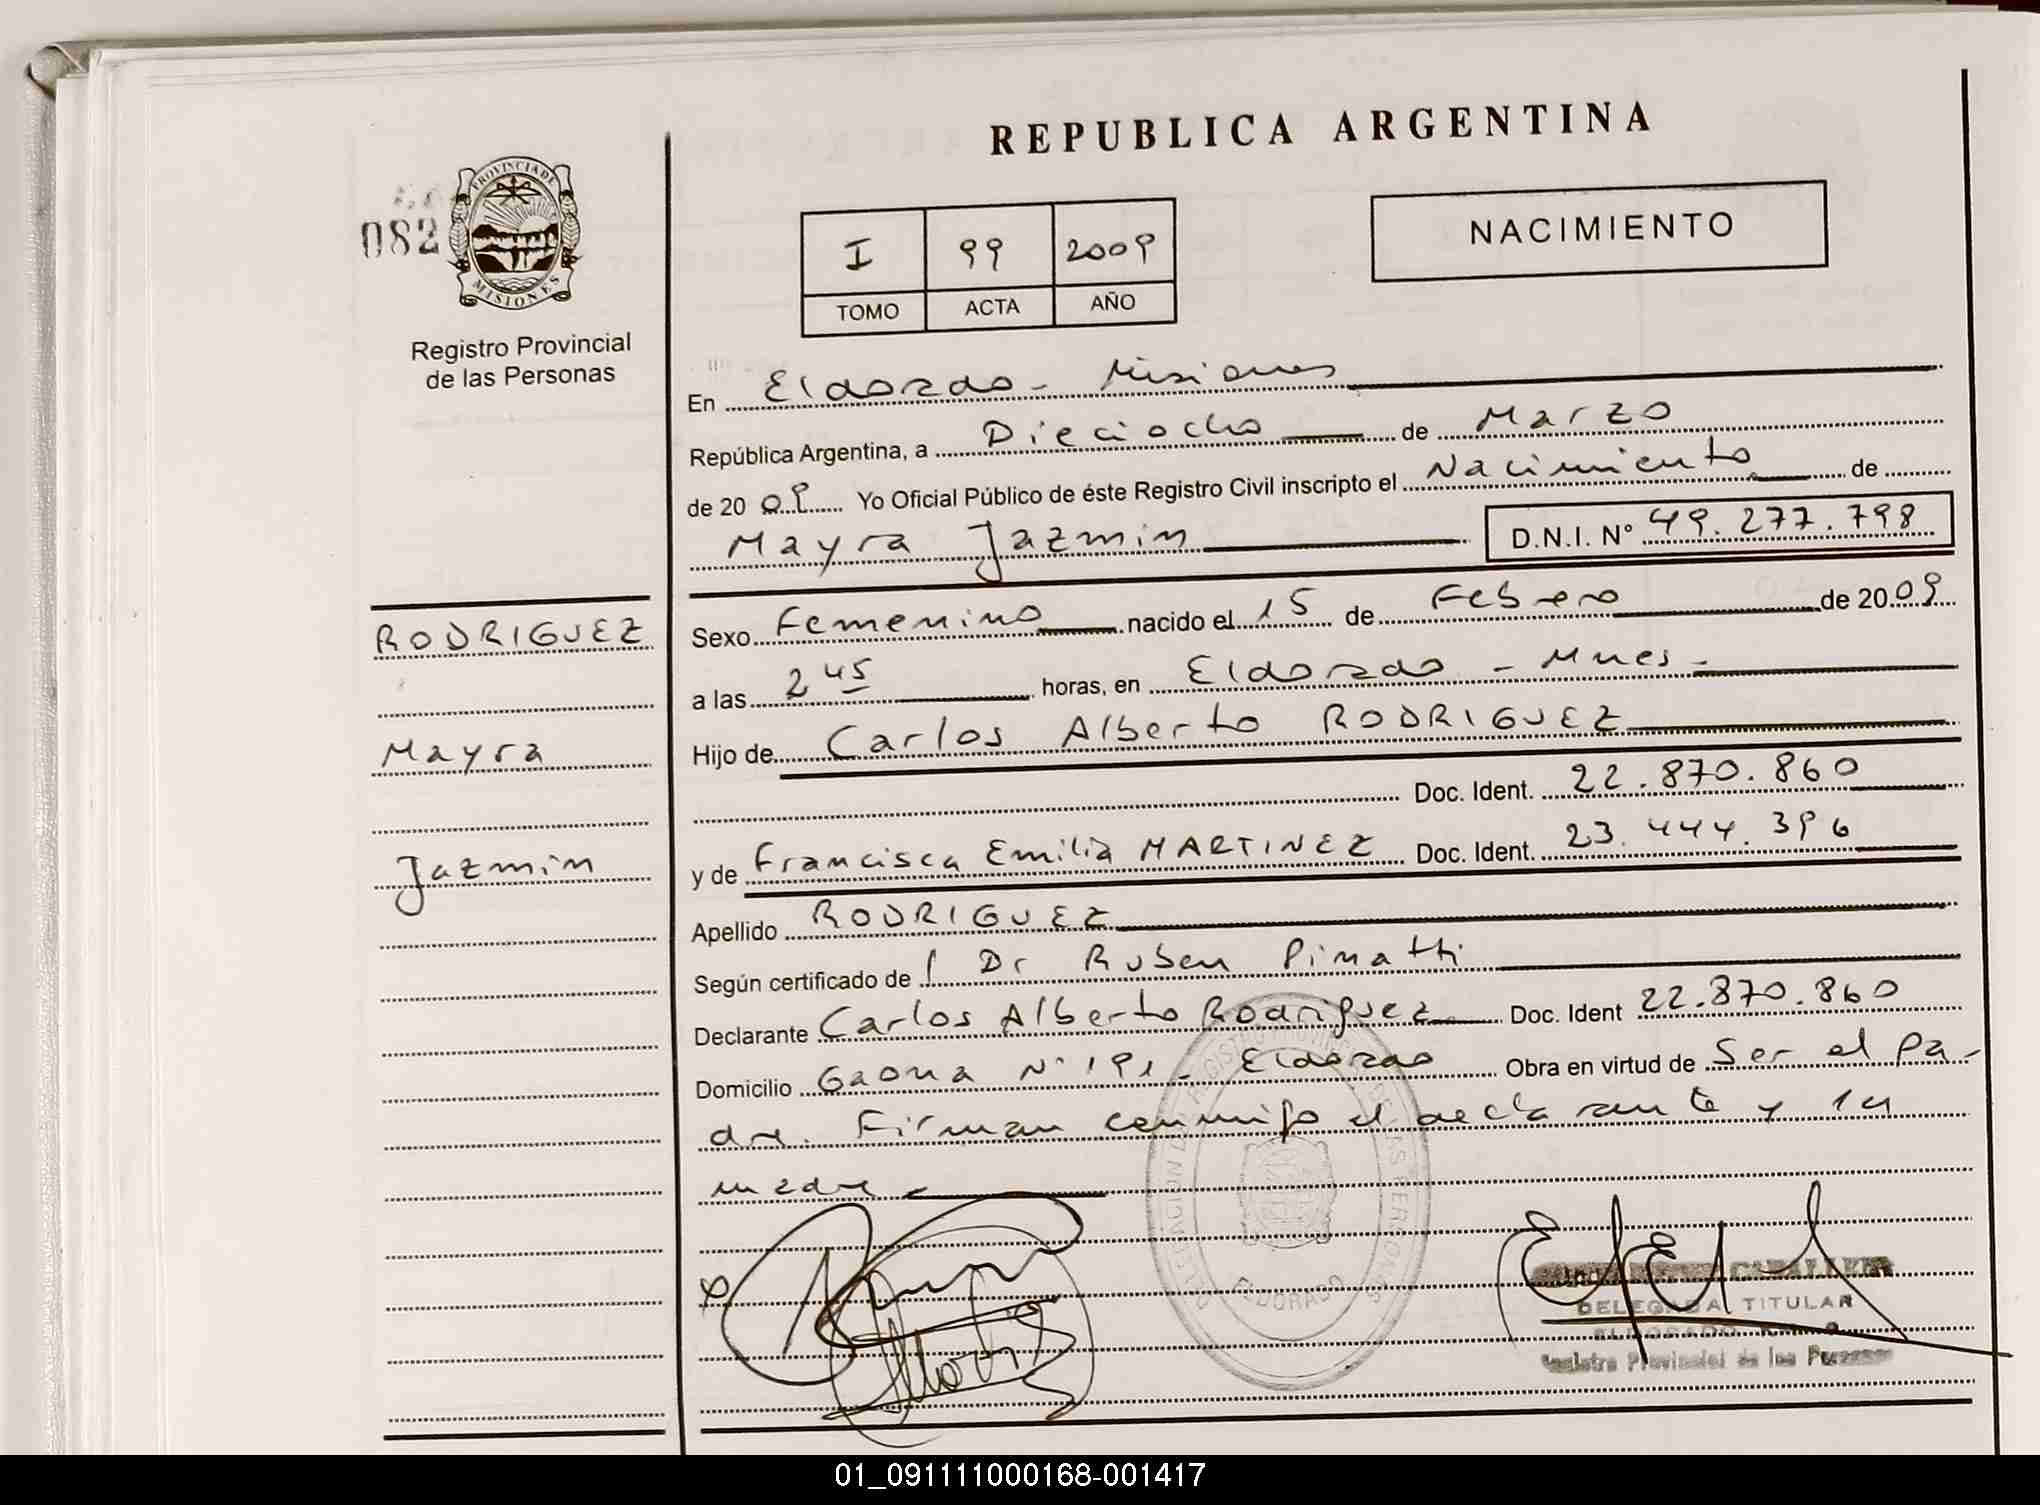 REPUBLICA ARGENTINA
082
PROVINCIA DE
MISIONES
Registro Provincial
de las Personas
I 99 2009
TOMO ACTA AÑO
NACIMIENTO
En Eldorado - Misiones
República Argentina, a Dieciocho de Marzo
de 20 09 Yo Oficial Público de éste Registro Civil inscripto el Nacimiento de
Mayra Jazmin D.N.I. N° 49.277.798
RODRIGUEZ
Mayra
Jazmin
Sexo Femenino nacido el 15 de Febrero de 20 09
a las 2 45 horas, en Eldorado - Mnes -
Hijo de Carlos Alberto RODRIGUEZ
Doc. Ident. 22.870.860
y de Francisca Emilia MARTINEZ Doc. Ident. 23.444.396
Apellido RODRIGUEZ
Según certificado de Dr Ruben Pimatti
Declarante Carlos Alberto Rodriguez Doc. Ident 22.870.860
Domicilio Gaona N° 191 - Eldorado Obra en virtud de Ser el pa-
dre. Firman conmigo el declarante y la
madre -
ELDORADO
DELEGADA TITULAR
Registro Provincial de las Personas
01_091111000168-001417